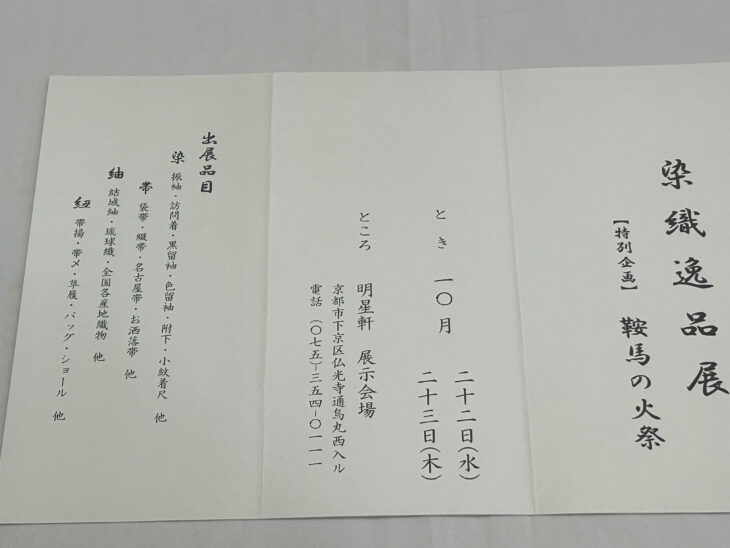 染織逸品展
【特別企画】 鞍馬の火祭
とき 一〇月 二十二日(水)
二十三日(木)
ところ 明星軒 展示会場
京都市下京区仏光寺通烏丸西入ル
電話 (〇七五)ー三五四ー〇一一一
出展品目
染 振袖・訪問着・黒留袖・色留袖・附下・小紋着尺 他
帯 袋帯・綴帯・名古屋帯・お洒落帯 他
紬 結城紬・琉球織・全国各産地織物 他
紐 帯揚・帯〆・草履・バッグ・ショール 他